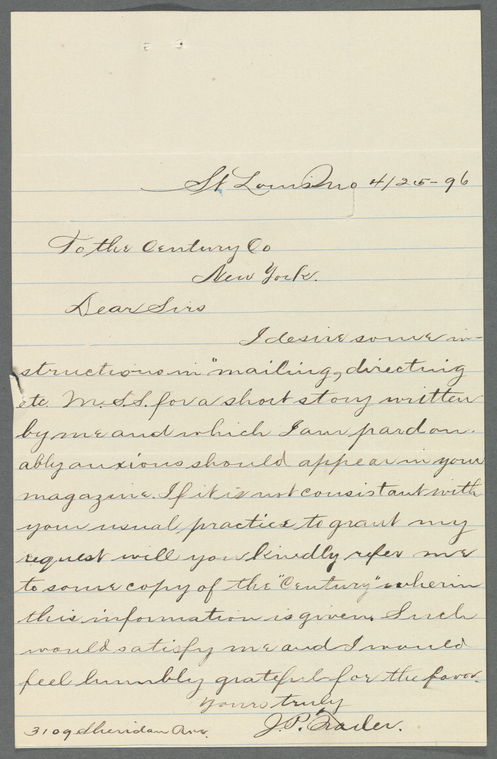 St Louis Mo 4/25-96
To the Century Co
New York.
Dear Sirs
I desire some in-
structions in "mailing, directing
etc. M.S.S. for a short story written
by me and which I am pardon-
ably anxious should appear in your
magazine. If it is not consistant with
your usual practice to grant my
request will you kindly refer me
to some copy of the "Century" wherin
this information is given. Such
would satisfy me and I would
feel humbly grateful for the favor.
Yours truly
J.P.
3109 Sheridan Ave.